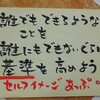 誰でもできるような
ことを
誰にもできないぐらい
基準を高めよう
セルフイメージあっぷ